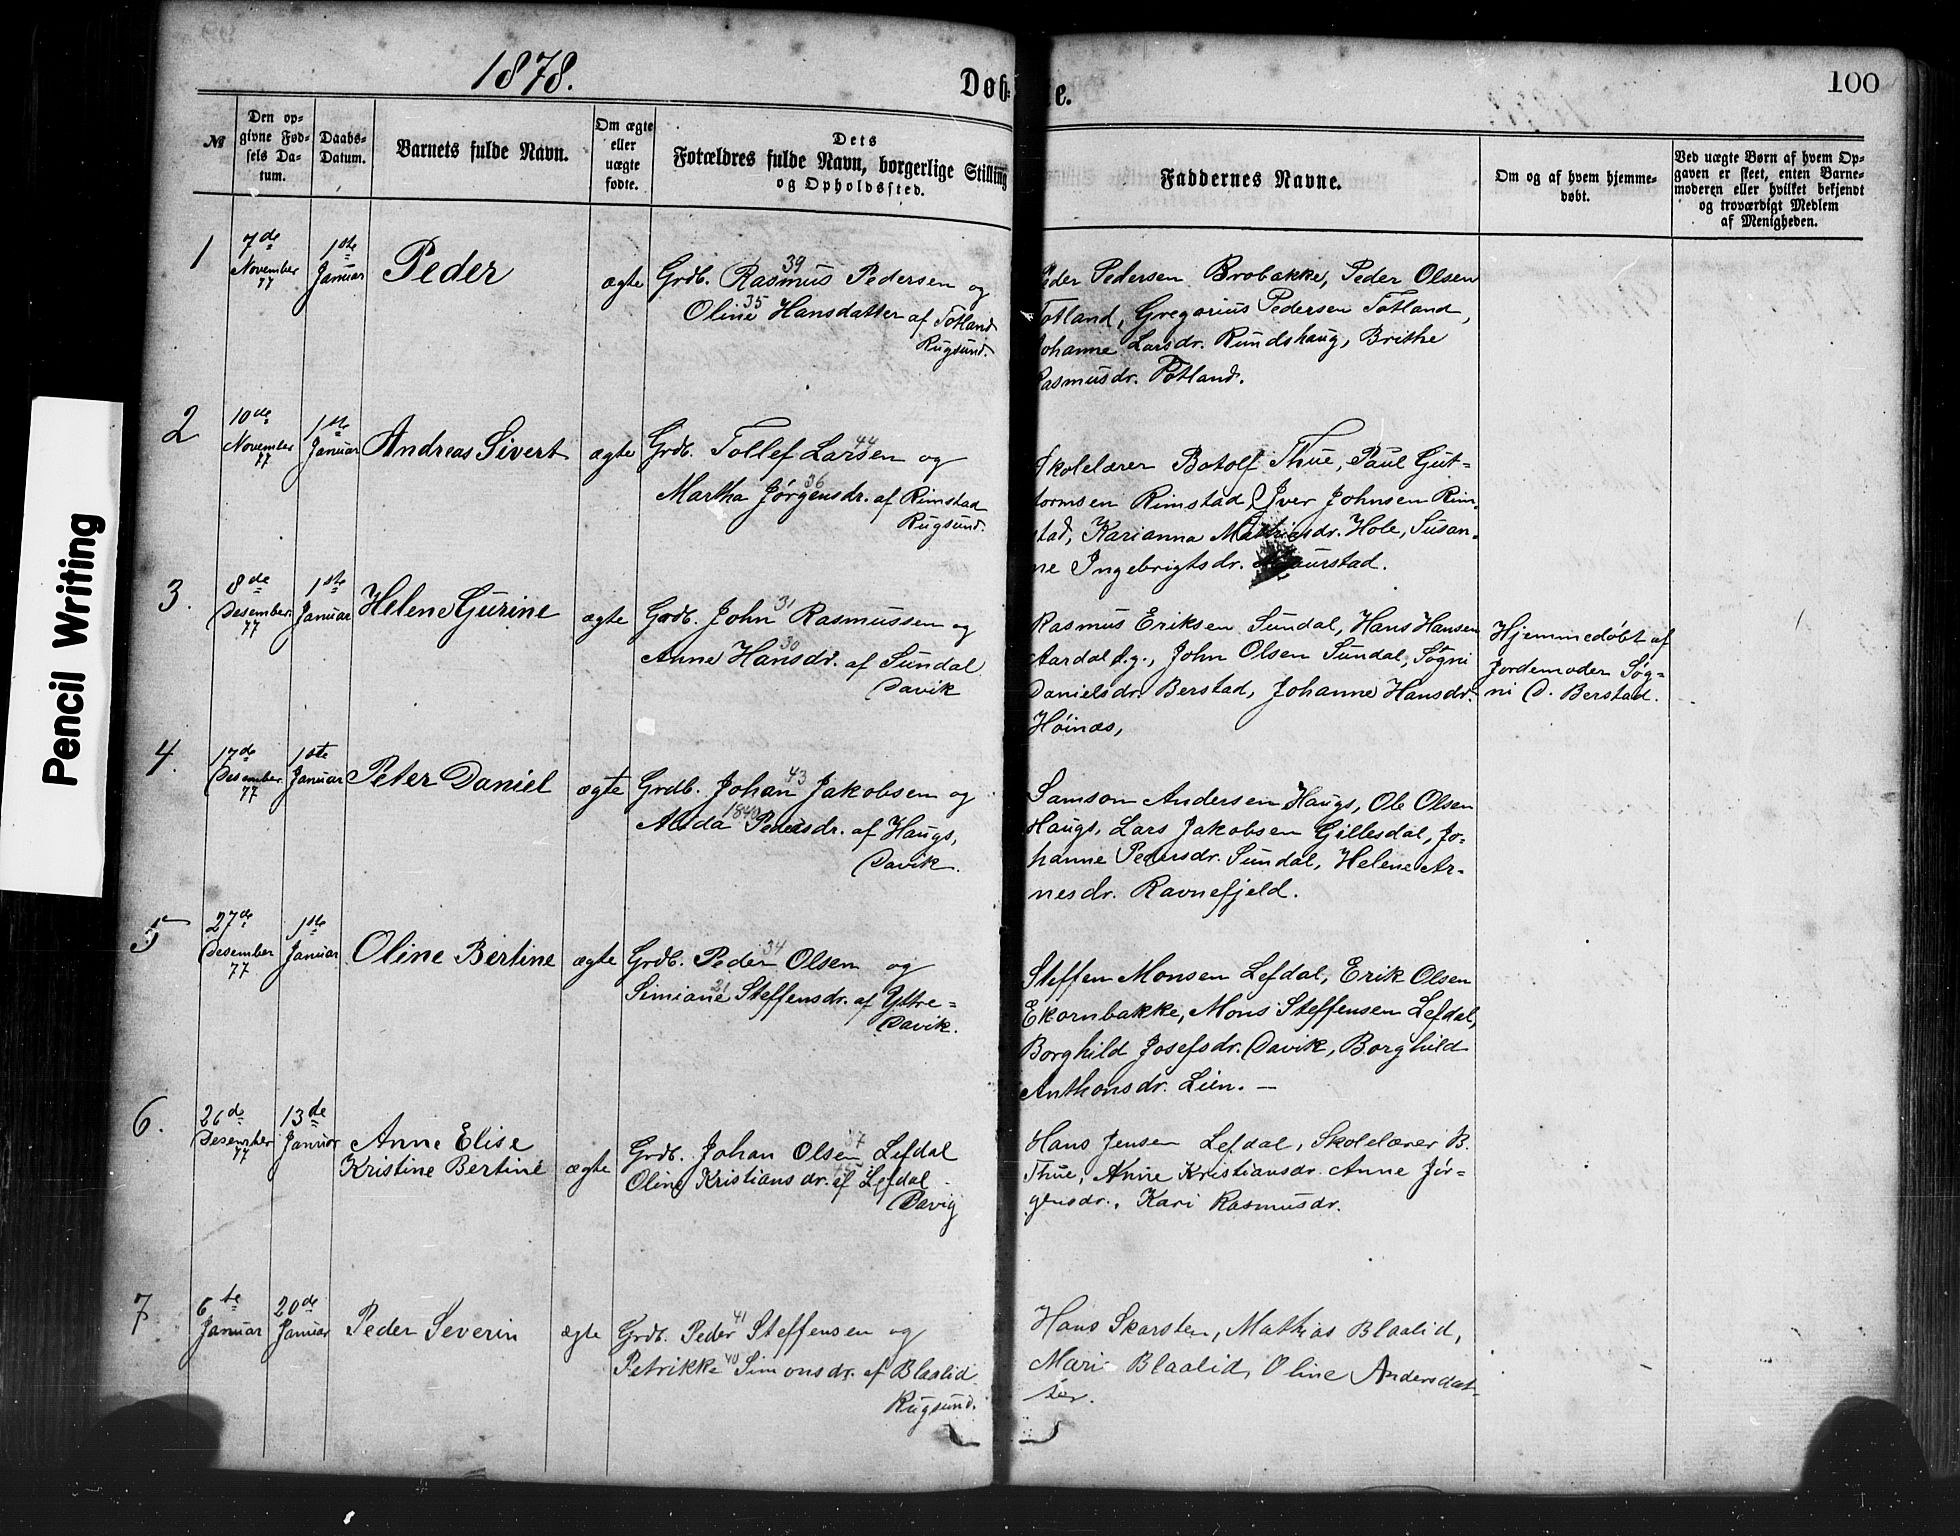 1878.
Døb- e.
100
№
Den op-
givne Fød-
sels Da-
tum.
Daabs-
Datum.
Barnets fulde Navn.
Om ægte
eller
uægte
fødte.
Dets
Forældres fulde Navn, borgerlige Stilling
og Opholdssted.
Faddernes Navne.
Om og af hvem hjemme-
døbt.
Ved uægte Børn af hvem Op-
gaven er skeet, enten Barne-
moderen eller hvilket bekjendt
og troværdigt Medlem
af Menigheden.
1
7de
November
77
1ste
Januar
Peder
ægte
39
Grdb. Rasmus Pedersen og
35
Oline Hansdatter af Totland
Rugsund.
eder Pedersen Brobakke, Peder Olsen
Totland, Gregorius Pedersen Totland,
Johanne Larsdr. Rundshaug, Brithe
Rasmusdr. Totland.
2
10de
November
77
1ste
Januar
Andreas Sivert
ægte
44
Grdb. Tollef Larsen og
36
Martha Jørgensdr. af Rimstad
Rugsund.
Skolelærer Botolf Thue, Paul Gut-
tormsen Rimstad, Iver Johnsen Rim-
stad, Karianna Mathiasdr. Hole, Susan-
ne Ingebrigtsdr. Maurstad.
3.
8de
Desember
77
1ste
Januar
Helene Gurine
ægte
31
Grdb. John Rasmussen og
30
Anne Hansdr. af Sundal
Davik
Rasmus Eriksen Sundal, Hans Hansen
Aardal d.y., John Olsen Sundal, Søgni
Danielsdr. Berstad, Johanne Hansdr.
Høinæs,
Hjemmedøbt af
Jordemoder Søg-
ni D. Berstad.
4.
17de
Desember
77
1ste
Januar
Peter Daniel
ægte
43
Grdb. Johan Jakobsen og
1840
Alida Pedersdr. af Haugs,
Davik.
Samson Andersen Haugs, Ole Olsen
Haugs, Lars Jakobsen Gillesdal, Jo-
hanne Pedersdr. Sundal, Helene Ar-
nesdr. Ravnefjeld.
5
27de
Desember
77
1ste
Januar
Oline Bertine
ægte
34
Grdb. Peder Olsen og
21
Simiane Steffensdr. af Yttre-
Davik.
Steffen Monsen Lefdal, Erik Olsen
Ekornbakke, Mons Steffensen Lefdal,
Borghild Josefsdr. Davik, Borghild
Anthonsdr. Lien. —
6.
26de
Desember
77
13de
Januar
Anne Elise
Kristine Bertine
ægte
37
Grdb. Johan Olsen Lefdal
Oline Kristiansdr. af Lefdal
Davig
Hans Jensen Lefdal, Skolelærer B.
Thue, Anne Kristiansdr. Anne Jør-
gensdr., Kari Rasmusdr.
7
6te
Januar
20de
Januar
Peder Severin
ægte
41
Grdb. Peder Steffensen og
40
Petrikke Simonsdr. af Blaalid
Rugsund.
Hans Skarsten, Mathias Blaalid,
Mari Blaalid, Oline Andersdat-
ter.
Pencil Writing